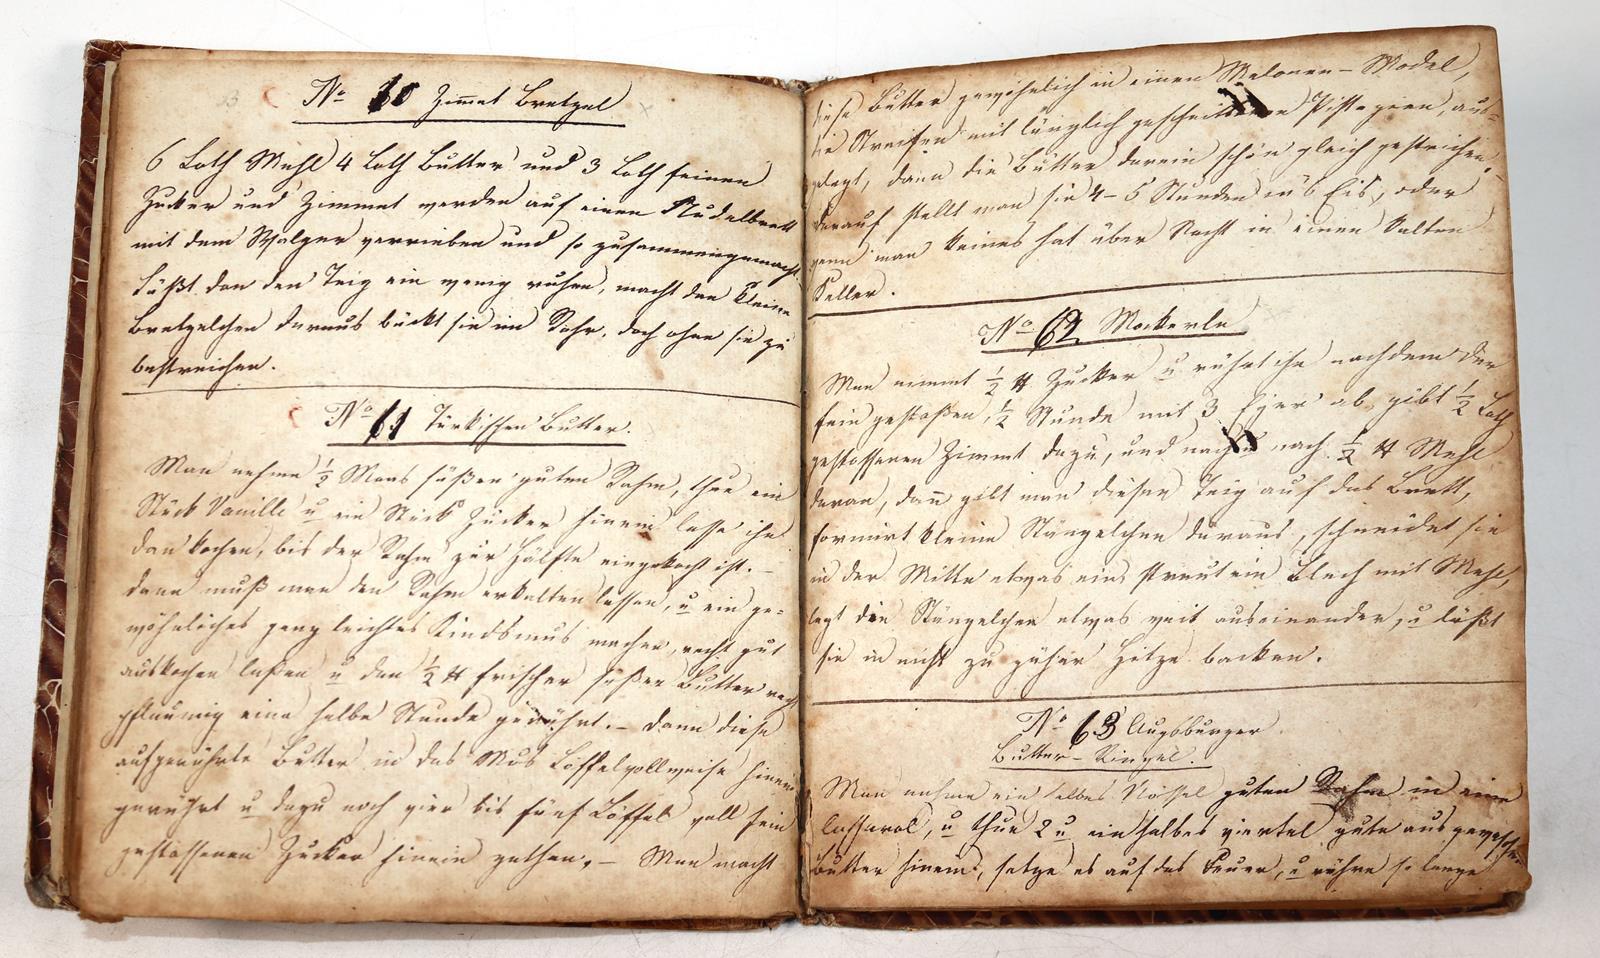 No 60 Zimmet Bretzel
6 Loth Mehl 4 Loth Butter und 3 Loth feinen
Zucker und Zimmet werden auf einen Nudelbrett
mit dem Walger verrieben und so zusammengemacht
läßt dan den Teig ein wenig ruhen, macht dan kleine
Bretzelchen daraus bäckt sie im Rohr, doch ohne sie zu
bestreichen.
No 61 Türkischen Butter.
Man nehme ½ Maas süßen guten Rahm, thue ein
Stück Vanille u ein Stück Zucker hinein lasse ihn
dan kochen, bis der Rahm zur Hälfte eingekocht ist. –
dann muß man den Rahm erkalten lassen, u ein ge=
wöhnliches ganz leichtes Kindsmus machen, recht gut
auskochen laßen u dan ½ ℔ frischer süßer Butter recht
pflaumig eine halbe Stunde gerührt. – dann diese
aufgerührte Butter in das Mus Löffelvollweise hinein
gerührt u dazu noch vier bis fünf Löffel voll fein
gestossenen Zucker hinein gethan. – Man macht
diese Butter gewöhnlich in einen Melonen-Model,
die Streifen mit länglich geschnittenen Pistazien, aus=
gelegt, dann die Butter darein schön gleich gestrichen,
darauf stellt man sie 4-5 Stunden in's Eis, oder
wenn man keines hat über Nacht in einen kalten
Keller.
No 62 Mockerln
Man nimmt ½ ℔ Zucker u rührt ihn nachdem der
fein gestoßen, ½ Stunde mit 3 Eyer ab, gibt ½ Loth
gestossenen Zimmt dazu, und nach u nach ½ ℔ Mehl
daran, dann gibt man diesen Teig auf das Brett,
formirt kleine Stängelchen daraus, schneidet sie
in der Mitte etwas ein, streut ein Blech mit Mehl,
legt die Stängelchen etwas weit auseinander, u läßt
sie in nicht zu gäher Hitze backen.
No 63 Augsburger
Butter-Ringel.
Man nehme ein halbes Nössel guten Rahm in eine
Casserol, u thue 2 u ein halbes viertel gute ausgewaschene
Butter hinein, setze es auf das Feuer, u rühre so lange